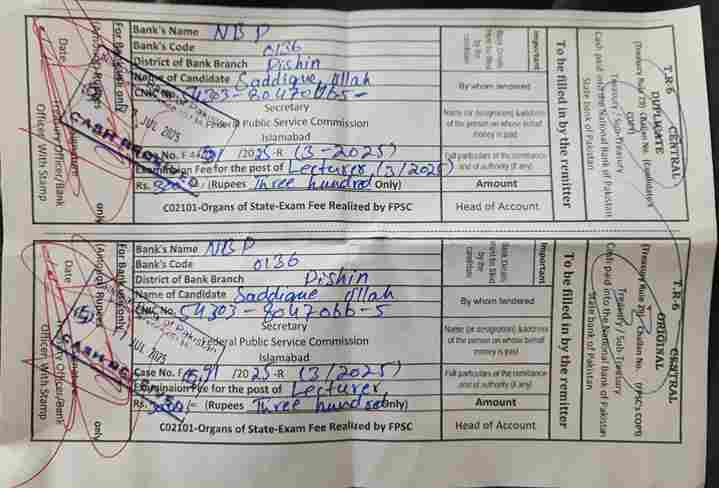 Bank's Name NBP
Bank's Code 0136
District of Bank Branch Pishin
Name of Candidate Saddique Ullah
CNIC No. 54303-8047066-5
Secretary
Federal Public Service Commission
Islamabad
/2025-R (3-2025)
Examination Fee for the post of Lecturer, (3/2025)
Rs. 300/- (Rupees Three hundred Only)
C02101-Organs of State-Exam Fee Realized by FPSC
Important
Bank Drafts
by the
condition
By whom tendered
Name (or designation) & address
of the person on whose behalf
money is paid
Full particulars of the remittance
and of authority (if any)
Amount
Head of Account
To be filled in by the remitter
T.R-6 CENTRAL
DUPLICATE
(Treasury Rule 29) Challan No. (Candidate's
COPY)
Treasury / Sub-Treasury
Cash paid into the National Bank of Pakistan
State bank of Pakistan
For Bank use only
(Amount Rupees only
Date
Treasury Officer/Bank
Officer With Stamp
JUL 2025
CASH RECEIVED
Bank's Name NBP
Bank's Code 0136
District of Bank Branch Pishin
Name of Candidate Saddique Ullah
CNIC No. 54303-8047066-5
Secretary
Federal Public Service Commission
Islamabad
Case No. F. /2025-R (3/2025)
Examinaion Fee for the post of Lecturer,
Rs. 300/- (Rupees Three hundred Only)
C02101-Organs of State-Exam Fee Realized by FPSC
Important
by the
condition
By whom tendered
Name (or designation) & address
of the person on whose behalf
money is paid
Full particulars of the remittance
and of authority (if any)
Amount
Head of Account
To be filled in by the remitter
T.R-6 CENTRAL
ORIGINAL
(Treasury Rule 29) Challan No. (FPSC's COPY)
Treasury / Sub-Treasury
Cash paid into the National Bank of Pakistan
State bank of Pakistan
For Bank use only
(Amount Rupees only
Date
Treasury Officer/Bank
Officer With Stamp
JUL 2025